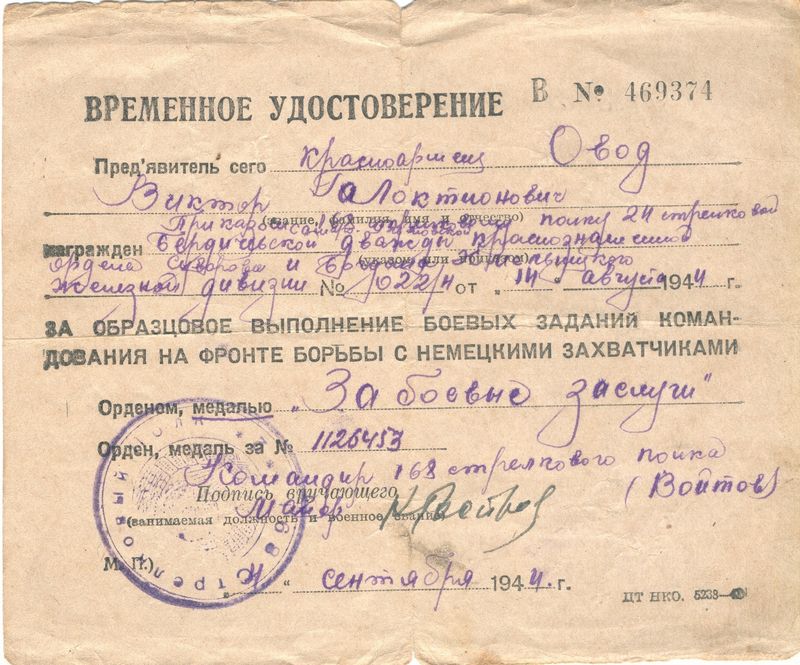 ВРЕМЕННОЕ УДОСТОВЕРЕНИЕ В № 469374
Пред'явитель сего красноармеец Овод
Виктор Галоктионович
(звание, фамилия, имя и отчество)
168 полку 24 стрелковой
награжден Бердичевской дважды краснознаменной
(указом или приказом)
ордена Суворова и Богдана Хмельницкого
Железной дивизии № 022/н от „14" августа 1944 г.
ЗА ОБРАЗЦОВОЕ ВЫПОЛНЕНИЕ БОЕВЫХ ЗАДАНИЙ КОМАН-
ДОВАНИЯ НА ФРОНТЕ БОРЬБЫ С НЕМЕЦКИМИ ЗАХВАТЧИКАМИ
Орденом, медалью „За боевые заслуги"
Орден, медаль за № 1126453
Командир 168 стрелкового полка
Подпись вручающего
Майор (Войтов)
(занимаемая должность и военное звание)
М. П.)
„4" сентября 1944 г.
ЦТ НКО. 5238